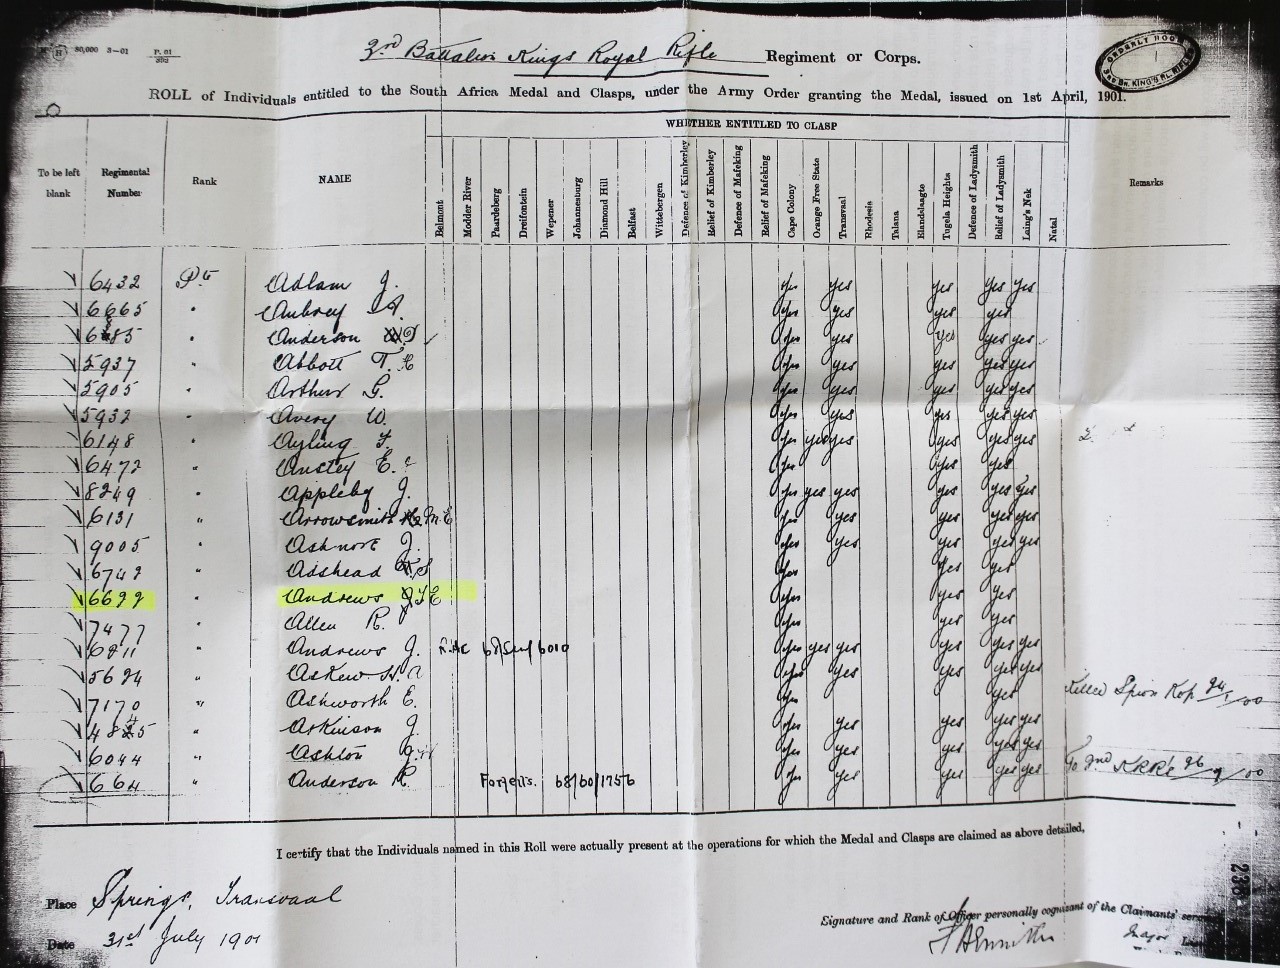 80,000 3—01 P. 01
3rd Battalion Kings Royal Rifle Regiment or Corps.
ORDERLY ROOM
3RD BN. KING'S RL. RIFLE
ROLL of Individuals entitled to the South Africa Medal and Clasps, under the Army Order granting the Medal, issued on 1st April, 1901.
WHETHER ENTITLED TO CLASP
To be left blank Regimental Number Rank NAME Belmont Modder River Paardeberg Dreifontein Wepener Johannesburg Diamond Hill Belfast Wittebergen Defence of Kimberley Relief of Kimberley Defence of Mafeking Relief of Mafeking Cape Colony Orange Free State Transvaal Rhodesia Talana Elandslaagte Tugela Heights Defence of Ladysmith Relief of Ladysmith Laing's Nek Natal Remarks
6432 Pte Adlam J. yes yes yes yes yes
6665 " Aubrey A. yes yes yes yes
" Anderson yes yes yes yes yes
5937 " Abbott T. yes yes yes yes yes
5905 " Arthur G. yes yes yes yes yes
5932 " Avery W. yes yes yes yes yes
6148 " Ayling F. yes yes yes yes yes yes
6472 " Anstey E. yes yes yes
8249 " Appleby J. yes yes yes yes yes yes
6131 " Arrowsmith M.E yes yes yes yes yes
9005 " Ashmore J. yes yes yes yes yes
6749 " Adshead S yes yes yes
6699 " Andrews J E yes yes yes
7477 " Allen R. yes yes yes
6911 " Andrews J. yes yes yes yes yes yes
5694 " Askew H. A yes yes yes yes yes
7170 " Ashworth E. yes yes Killed Spion Kop 24/1/00
" Atkinson J yes yes yes yes yes
6044 " Ashton yes yes yes yes yes
664 " Anderson R. Forfeits. 68/60/1756 yes yes yes yes yes To 2nd KRR's 26/9/00
I certify that the Individuals named in this Roll were actually present at the operations for which the Medal and Clasps are claimed as above detailed,
Place Springs, Transvaal
Date 31st July 1901
Signature and Rank of Officer personally cognizant of the Claimants'
Major